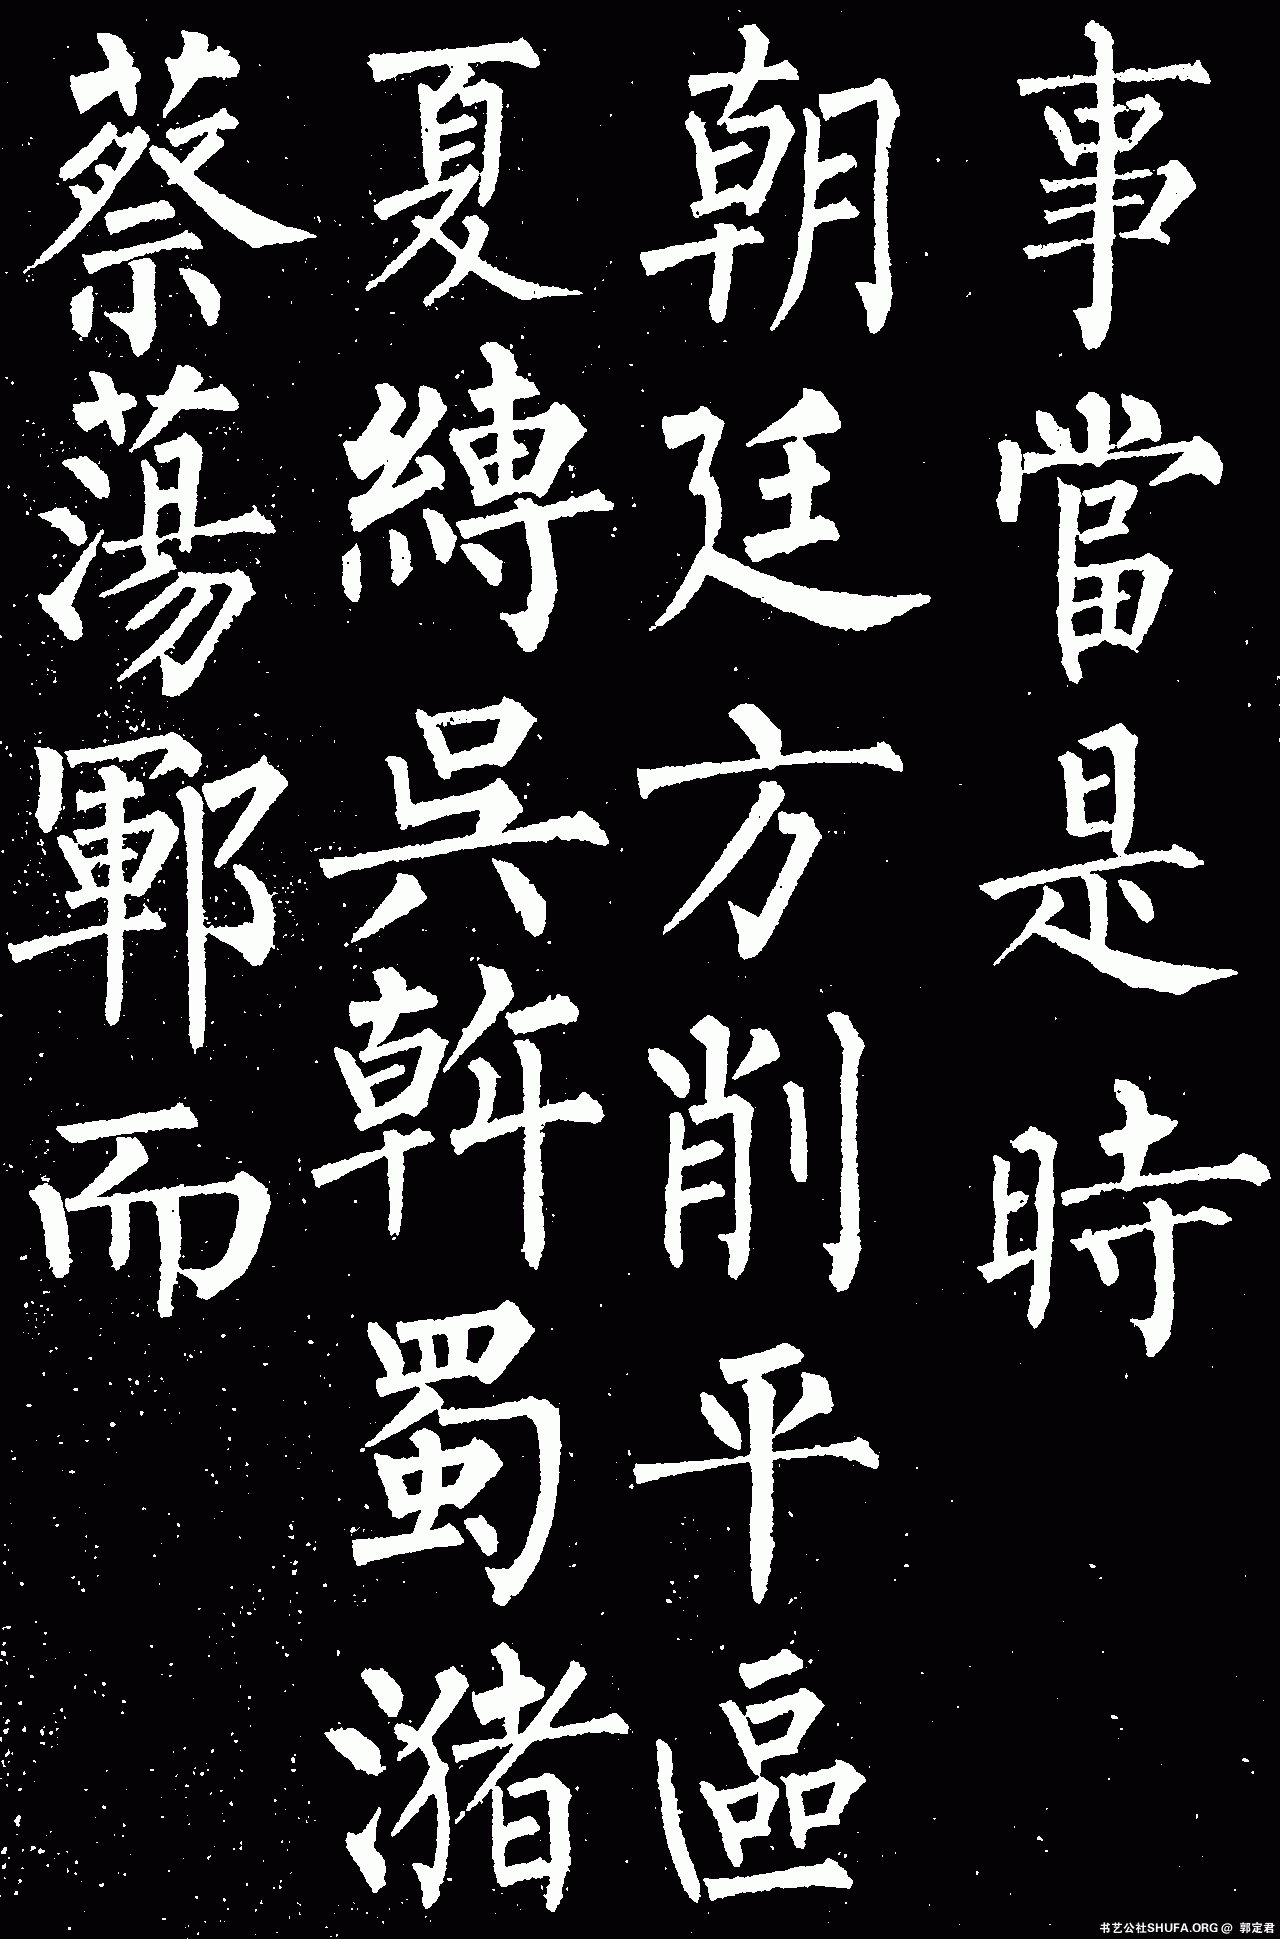 事當是時
朝廷方削平區
夏縛吳斡蜀瀦
蔡蕩鄆而
书艺公社SHUFA.ORG @ 郭定君